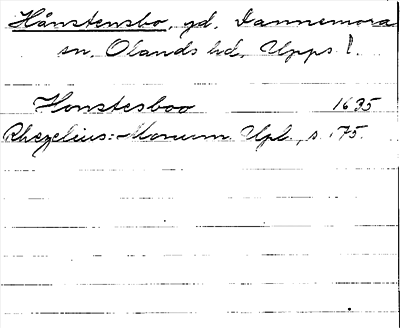 Hånstensbo, gd, Dannemora
sn, Olands hd, Upps. l.
Honstesboo 1635
Rhezelius: Monum. Upl., s. 175.